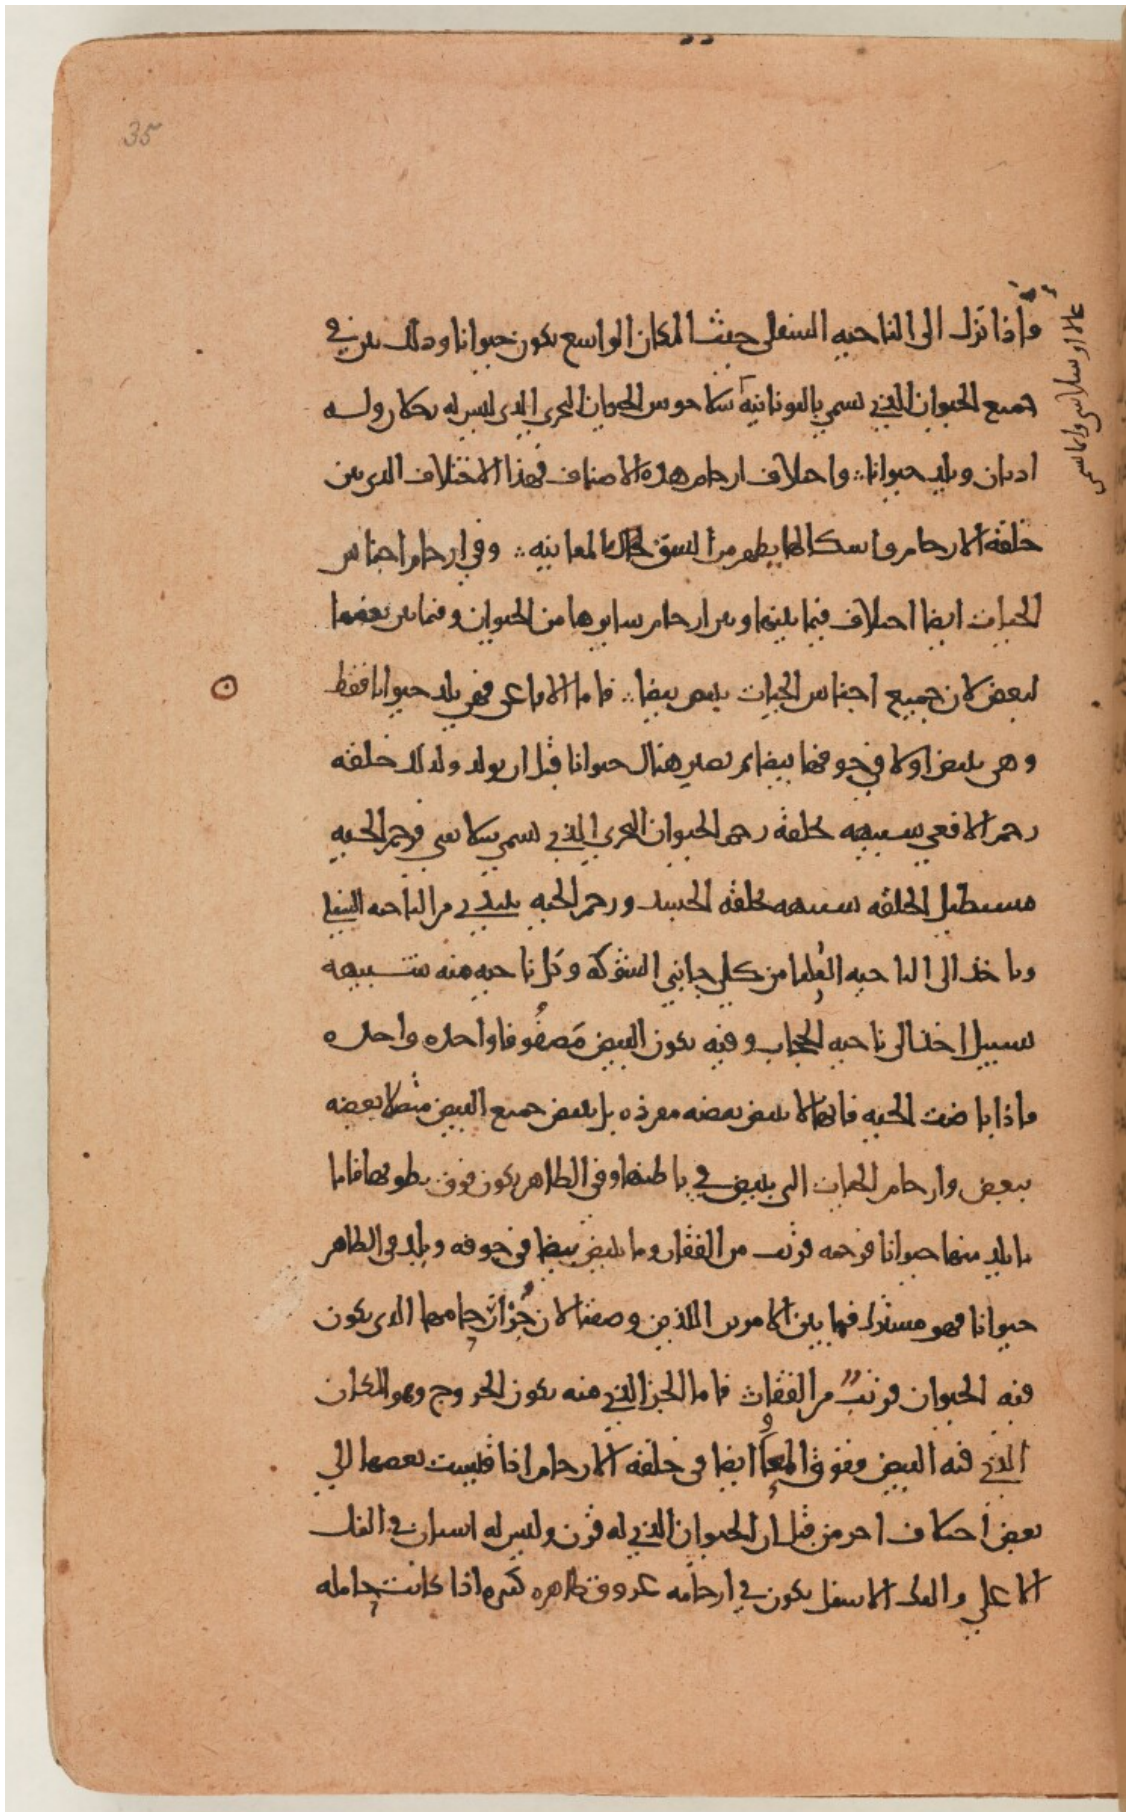 35
واذا نزل الى الناحيه السفلى حيث المكان الواسع يكون حيوانا وذلك بين في
جميع الحيوان الذي يسمى باليونانية سلاخوس الحيوان البحري الذي ليس له وله
اذنان ويلد حيوانا ∴ واختلاف ارحام هذه الاصناف فهذا الاختلاف الذي بين
خلقة الارحام واسكالها يظهر من الشق المعاينه ∴ وفي ارحام اجناس
الحيات ايضا اختلاف فيما بينها وبين ارحام سايرها من الحيوان وفيما بين بعضها
لبعض لان جميع اجناس الحيات يبيض بيضا ∴ فاما الافاعى فهي يلد حيوانا فقط
وهى يبيض اولا في جوفها بيضا ثم يصير هناك حيوانا قبل ان يولد ولذلك خلقه
رحم الافعى شبيهه بخلقة رحم الحيوان البحري الذي يسمى سلاسى فرحم الحيه
مستطيل الخلقه شبيهه بخلقه الجسد ورحم الحيه يبتدي من الناحيه السفلى
وياخذ الى الناحيه العليا من كلى جانبي الشوكه وكل ناحيه منه شبيهه
بسبيل اخذ الى ناحيه الحجاب وفيه يكون البيض مصفوفا واحده واحده
فاذا باضت الحيه فانها لا يبيض بعضه مفرده بل يبيض جميع البيض متصلا بعضه
ببعض وارحام الحيات التى يبيض في باطنها وفى الظاهر يكون فوق بطونها فاما
ما يلد منها حيوانا فرحمه قريب من الفقار وما يبيض بيضا في جوفه ويلد في الظاهر
حيوانا فهو مشترك فيما بين الامرين اللذين وصفنا لان جزا ارحامها الذي يكون
فيه الحيوان قريب من الفقارات فاما الجزا الذي منه يكون الخروج وهو المكان
الذي فيه البيض ففوق المعا ايضا فى خلقه الارحام اذا قيست بعضها الى
بعض اختلاف اخر من قبل ان الحيوان الذي له قرن وليس له اسنان في الفك
الاعلى والفك الاسفل يكون في ارحامه عروق ظاهره كثيره اذا كانت حامله